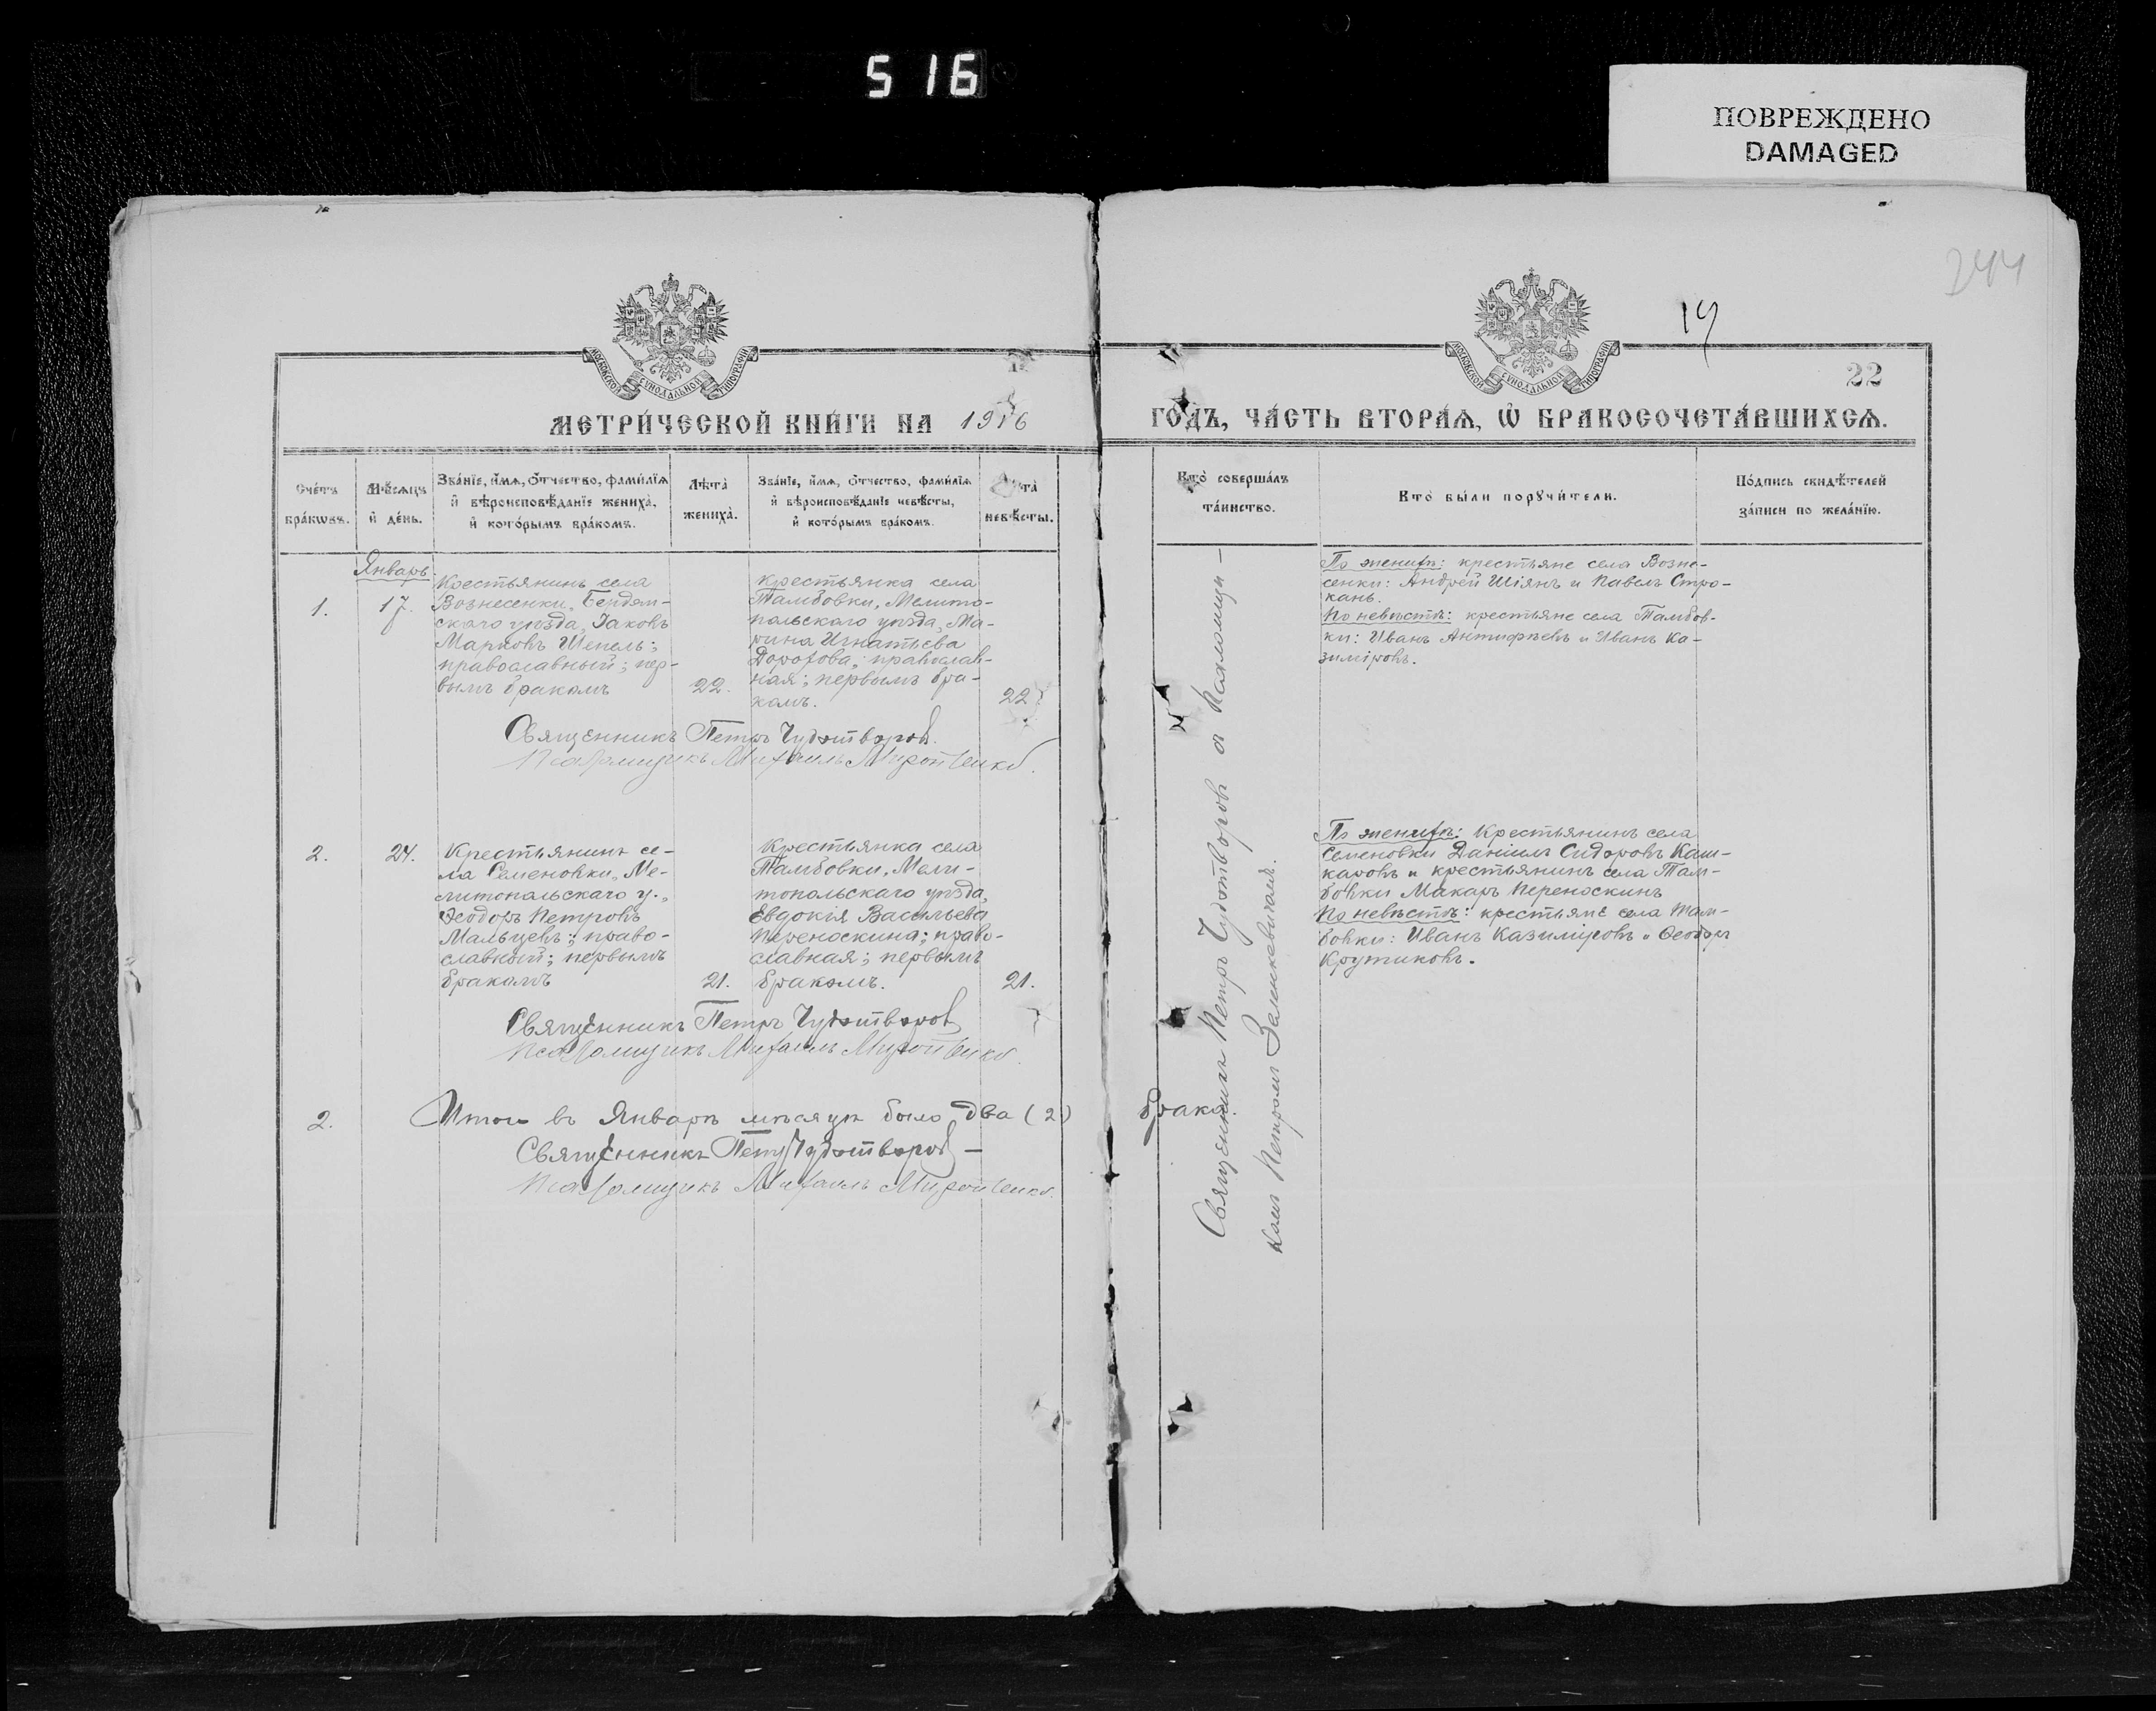 516
ПОВРЕЖДЕНО
DAMAGED
244
19
22
МОСКОВСКОЙ СУНОДАЛЬНОЙ ТИПОГРАФІИ
МОСКОВСКОЙ СУНОДАЛЬНОЙ ТИПОГРАФІИ
МЕТРИ́ЧЕСКОЙ КНИ́ГИ НА 1916
ГО́ДЪ, ЧА́СТЬ ВТОРА́Ѧ, Ѡ҆ БРАКОСОЧЕТА́ВШИХСѦ.
Сче́тъ
бра́кѡвъ.
Мѣ́сѧцъ
и҆ де́нь.
Зва́нїе, и҆́мѧ, ѻ҆́тчество, фами́лїѧ
и҆ вѣроисповѣ́данїе жениха̀,
и҆ кото́рымъ бра́комъ.
Лѣ́та̀
жениха̀.
Зва́нїе, и҆́мѧ, ѻ҆́тчество, фами́лїѧ
и҆ вѣроисповѣ́данїе невѣ́сты,
и҆ кото́рымъ бра́комъ.
невѣ́сты.
Кто̀ соверша́лъ
та́инство.
Кто̀ бы́ли порꙋчи́тели.
По́дпись свидѣ́телей
за́писи по жела́нїю.
Январь
1.
17.
Крестьянинъ села
Вознесенки, Бердян-
скаго уѣзда, Іаковъ
Марковъ Шепель;
православный; пер-
вымъ бракомъ
22.
Крестьянка села
Тамбовки, Мелито-
польскаго уѣзда, Ма-
рина Игнатьева
Дорофова; православ-
ная; первымъ бра-
комъ.
22
Священникъ Петръ Чудотворовъ.
Псаломщикъ Михаилъ Миротенко.
По женихѣ: крестьяне села Возне-
сенки: Андрей Шіянъ и Павелъ Стро-
канъ.
По невѣстѣ: крестьяне села Тамбов-
ки: Иванъ Антифѣевъ и Иванъ Ка-
зиміровъ.
2.
24.
Крестьянинъ се-
ла Семеновки, Ме-
литопольскаго у.,
Ѳеодоръ Петровъ
Мальцевъ; право-
славный; первымъ
бракомъ
21.
Крестьянка села
Тамбовки, Мели-
топольскаго уѣзда,
Евдокія Васильева
Переноскина; право-
славная; первымъ
бракомъ.
21.
Священникъ Петръ Чудотворовъ
Псаломщикъ Михаилъ Миротенко.
По женихѣ: Крестьянинъ села
Семеновки Даніилъ Сидоровъ Каш-
каровъ и крестьянинъ села Там-
бовки Макаръ Переноскинъ
По невѣстѣ: крестьяне села Там-
бовки: Иванъ Казиміровъ и Ѳеодоръ
Крутиковъ.
Священникъ Петръ Чудотворовъ съ Псаломщи-
комъ Петромъ
2.
Итого въ Январѣ мѣсяцѣ было два (2) брака.
Священникъ Петръ Чудотворовъ
Псаломщикъ Михаилъ Миротенко.